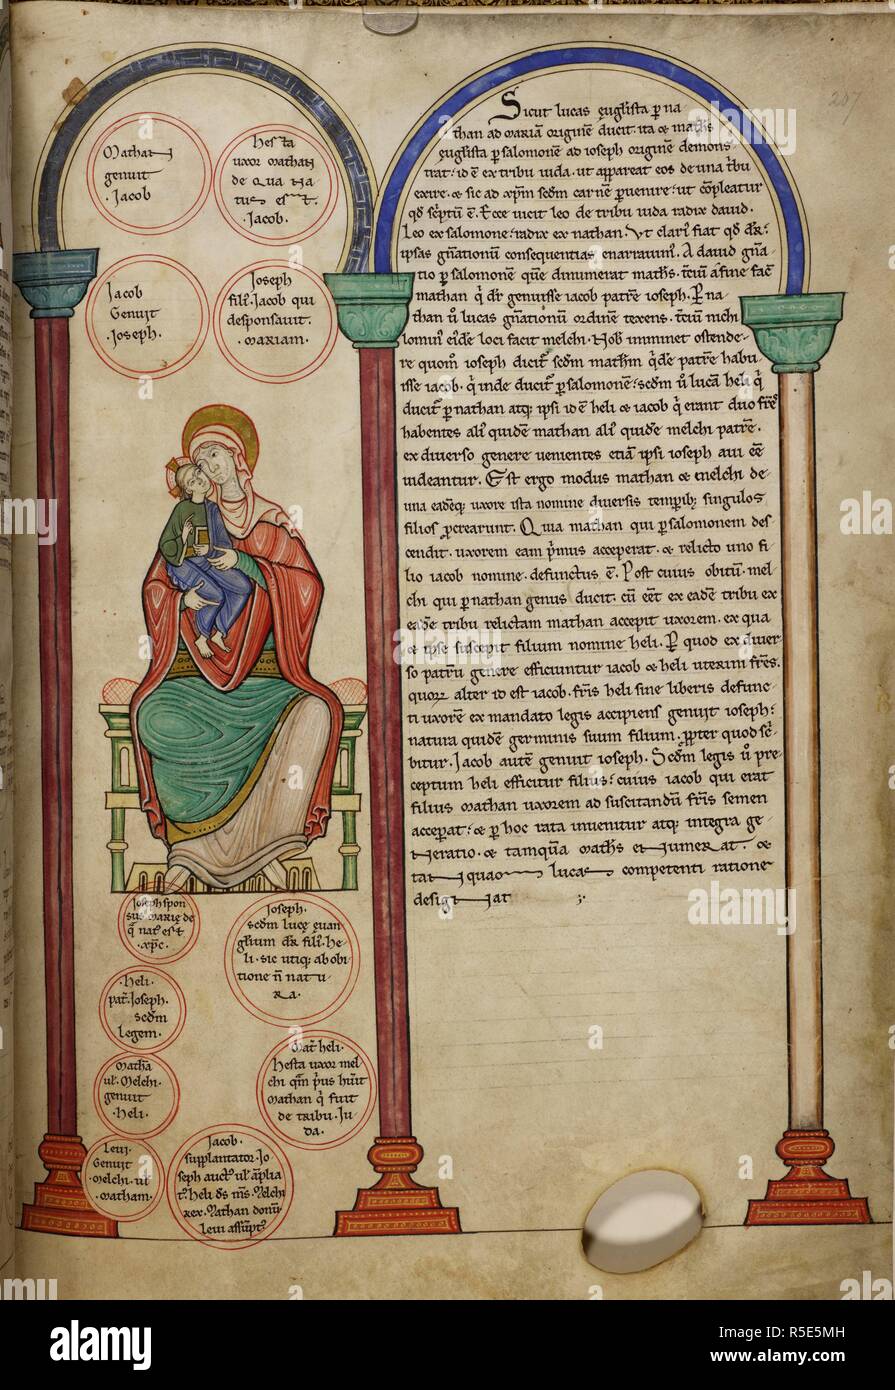 Mathan
genuit
Iacob
Hesta
uxor mathan
de qua na
tus est
Iacob.
Iacob
Genuit
Ioseph.
Ioseph
fili. Iacob qui
desponsauit.
mariam.
207
Sicut lucas euglista p na
than ad mariā originē ducit. ita & math's
euglista p salomonē ad ioseph originē demons
trat. id ē ex tribu iuda. ut appareat eos de una t'bu
exire. & sic ad xp̄m scd̄m carnē puenire. ut cōpleatur
qd sc̄ptū ē. Ecce uicit leo de tribu iuda radix dauid.
Leo ex salomone. radix ex nathan. Ut clari' fiat qd dr̄.
ipsas gn̄ationū consequentias enarraum'. A dauid gn̄a
tio p salomonē quē dinumerat math's. tciū a fine facit
mathan q dr̄ genuisse iacob patrē ioseph. P na
than ū lucas gn̄ationū ordinē texens. tciū nichi
lomin' ei'dē loci facit melchi. Nob' imminet ostende
re quom̄ ioseph dicit' scd̄m mathm̄ q'dē patrē habu
isse iacob. q inde ducit' p salomonē. scd̄m ū lucā heli q
ducit' p nathan atq; ipsi id ē heli & iacob q erant duo fr̄s
habentes ali' quidē mathan ali' quidē melchi patrē.
ex diuerso genere uenientes etiā ipsi ioseph aui ēē
uideantur. Est ergo modus mathan & melchi de
una eadēq; uxore ista nomine diuersis temporib; singulos
filios pcrearunt. Quia mathan qui p salomonem des
cendit. uxorem eam p'mus acceperat. & relicto uno fi
lio iacob nomine. defunctus ē. Post cuius obitū. mel
chi qui p nathan genus ducit. cū ēēt ex eadē tribu ex
eadē tribu relictam mathan accepit uxorem. ex qua
& ipse suscepit filium nomine heli. P quod ex diuer
so patrū genere efficiuntur iacob & heli uterini fr̄s.
quor alter id est iacob. fr̄is heli sine liberis defunc
ti uxorē ex mandato legis accipiens genuit ioseph.
natura quidē germinis suum filium. ppter quod sc̄i
bitur. Iacob autē genuit ioseph. Scd̄m legis ū pre
ceptum heli efficitur filius. cuius iacob qui erat
filius mathan uxorem ad suscitandū fr̄is semen
acceperat. & p hoc rata inuenitur atq; integra ge
neratio. & tamquā math's et numerat. &
tat quam lucas competenti ratione
designat
Ioseph spon
sus marię de
q nat' est
xp̄c.
Ioseph.
scd̄m lucę euan
glium dr̄ fili'. he
li. sic utiq; ab obi
tione n̄ natu
ra.
Heli.
pat'. Ioseph.
scd̄m
legem.
Matha
ul'. Melchi.
genuit
Heli.
Mat' heli.
hesta uxor mel
chi quā p'us huīt
mathan q fuit
de tribu. Iu
da.
Leui.
Genuit
Melchi. ul'
matham.
Iacob.
supplantator. Io
seph auct' ul' āplia
t'. heli ds m's. Melchi
rex. Mathan donū.
Leui assūpt'.
alamy
Image ID: R5E5MH
www.alamy.com